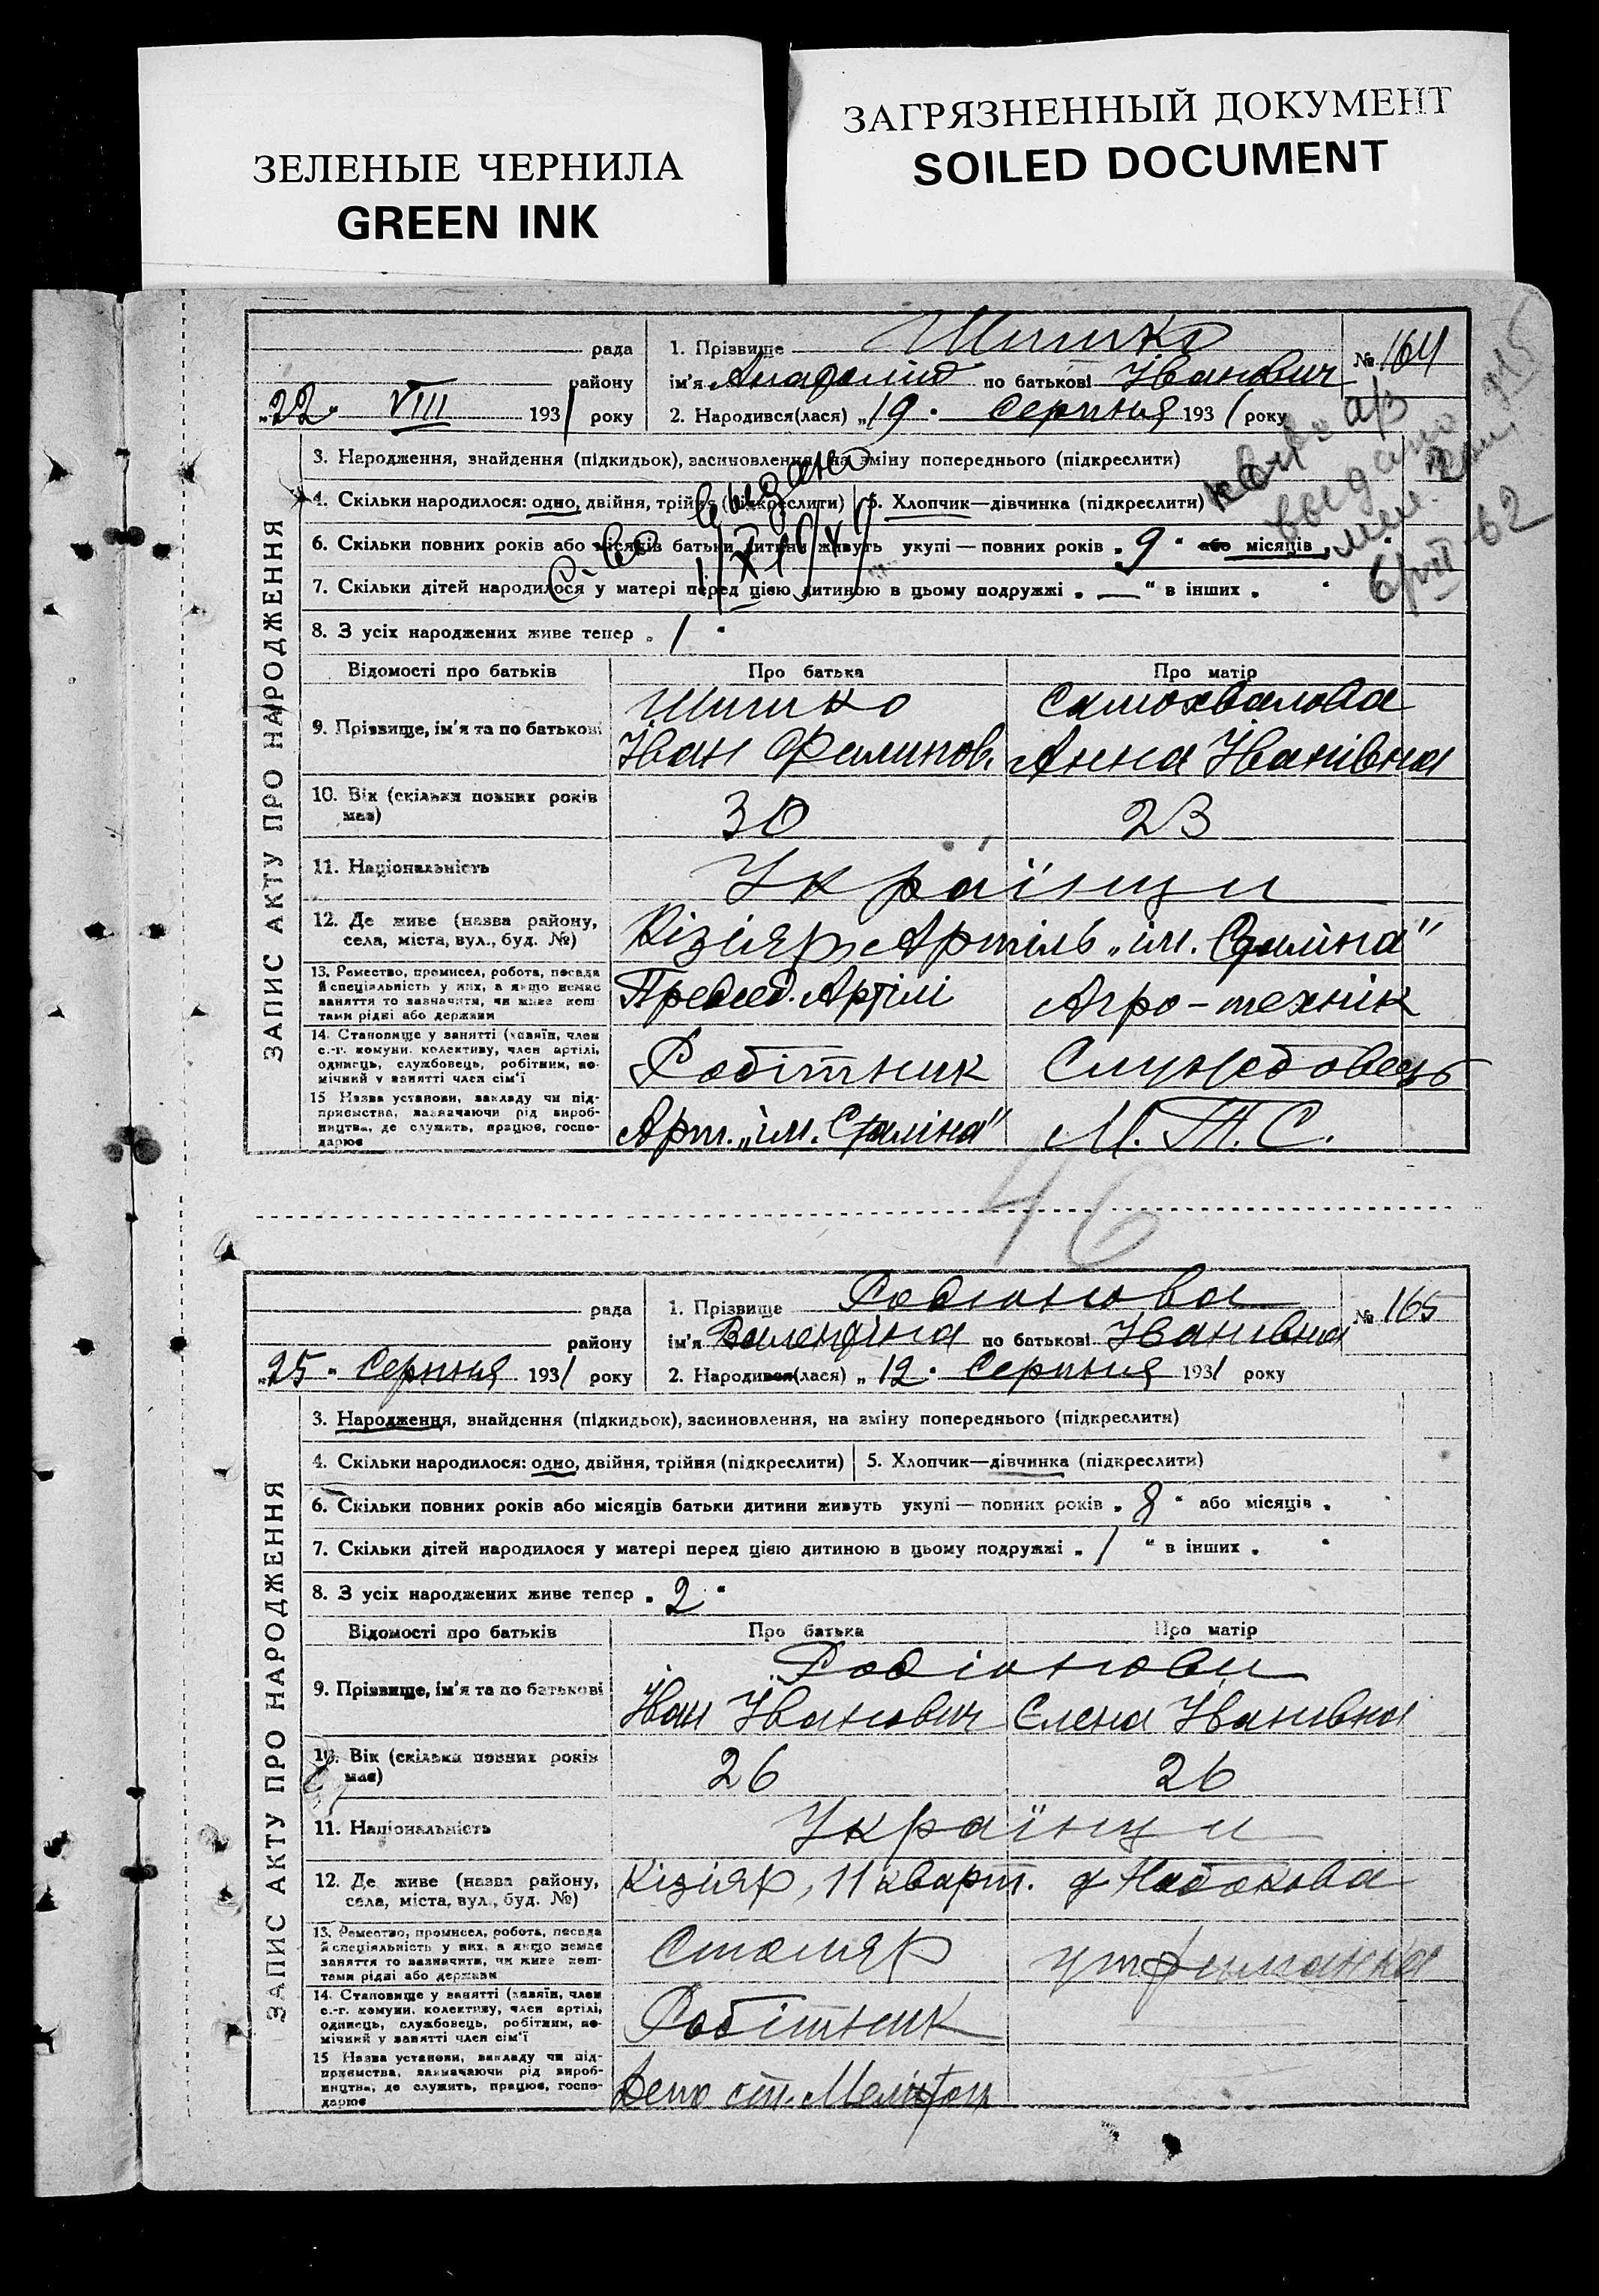 ЗЕЛЕНЫЕ ЧЕРНИЛА
GREEN INK
ЗАГРЯЗНЕННЫЙ ДОКУМЕНТ
SOILED DOCUMENT
ЗАПИС АКТУ ПРО НАРОДЖЕННЯ
рада
району
„22" VIII 1931 року
1. Прізвище Шишко
ім'я Анатолий по батькові Іванович
№ 164
2. Народився(лася) „19" Серпня 1931 року
3. Народження, знайдення (підкидьок), засиновлення, на зміну попереднього (підкреслити)
4. Скільки народилося: одно, двійня, трійня (підкреслити)
5. Хлопчик—дівчинка (підкреслити)
6. Скільки повних років або місяців батьки дитини живуть укупі — повних років „9" або місяців „ "
7. Скільки дітей народилося у матері перед цією дитиною в цьому подружжі „—" в інших „ "
8. З усіх народжених живе тепер „1"
с-во выдано
выдано
6/VII-62
Відомості про батьків
Про батька
Про матір
9. Прізвище, ім'я та по батькові
Шишко
Іван Филипов.
Самохвалова
Анна Іванівна
10. Вік (скільки повних років має)
30
23
11. Національність
Українци
12. Де живе (назва району, села, міста, вул., буд. №)
Кізіяр Артіль „ім. Сталіна"
13. Ремество, промисел, робота, посада й спеціяльність у них, а якщо немає заняття то зазначити, чи живе коштами рідні або держави
Председ. Артілі
Агро-технік
14. Становище у занятті (хазяїн, член с.-г. комуни, колективу, член артілі, одинець, службовець, робітник, помічний у занятті член сім'ї
Робітник
Службовець
15 Назва установи, закладу чи підприємства, зазначаючи рід виробництва, де служить, працює, господарює
Арт. „ім. Сталіна"
М.Т.С.
46
ЗАПИС АКТУ ПРО НАРОДЖЕННЯ
рада
району
„25" Серпня 1931 року
1. Прізвище Родіонова
ім'я Валентіна по батькові Іванівна
№ 165
2. Народився(лася) „12" Серпня 1931 року
3. Народження, знайдення (підкидьок), засиновлення, на зміну попереднього (підкреслити)
4. Скільки народилося: одно, двійня, трійня (підкреслити)
5. Хлопчик—дівчинка (підкреслити)
6. Скільки повних років або місяців батьки дитини живуть укупі — повних років „8" або місяців „ "
7. Скільки дітей народилося у матері перед цією дитиною в цьому подружжі „1" в інших „ "
8. З усіх народжених живе тепер „2"
Відомості про батьків
Про батька
Про матір
9. Прізвище, ім'я та по батькові
Родіонови
Іван Іванович
Єлена Іванівна
10. Вік (скільки повних років має)
26
26
11. Національність
Українци
12. Де живе (назва району, села, міста, вул., буд. №)
Кізіяр, 11 кварт. д Набокова
13. Ремество, промисел, робота, посада й спеціяльність у них, а якщо немає заняття то зазначити, чи живе коштами рідні або держави
Столяр
утриманка
14. Становище у занятті (хазяїн, член с.-г. комуни, колективу, член артілі, одинець, службовець, робітник, помічний у занятті член сім'ї
Робітник
15 Назва установи, закладу чи підприємства, зазначаючи рід виробництва, де служить, працює, господарює
Депо ст. Мелітоп